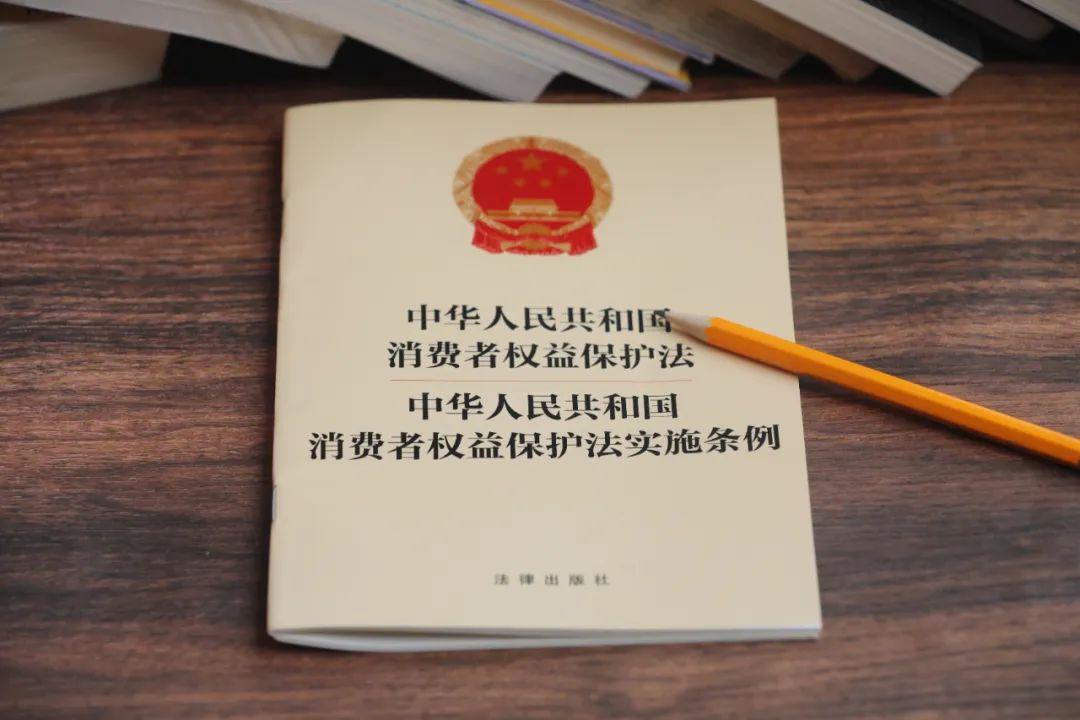 中华人民共和国
消费者权益保护法
中华人民共和国
消费者权益保护法实施条例
法律出版社